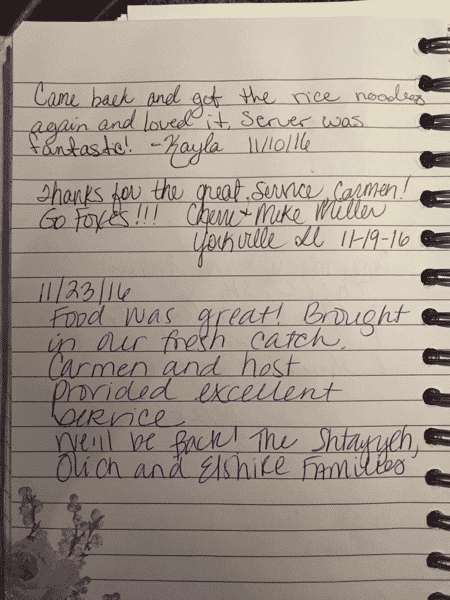 Came back and got the rice noodles
again and loved it. Server was
fantastic! - Kayla 11/10/16
Thanks for the great service Carmen!
Go Foxes!!! Cherie + Mike Miller
Yorkville Il 11-19-16
11/23/16
Food was great! Brought
in our fresh catch.
Carmen and host
provided excellent
service
We'll be back! The Shtayyeh,
Olich and Elshike Families